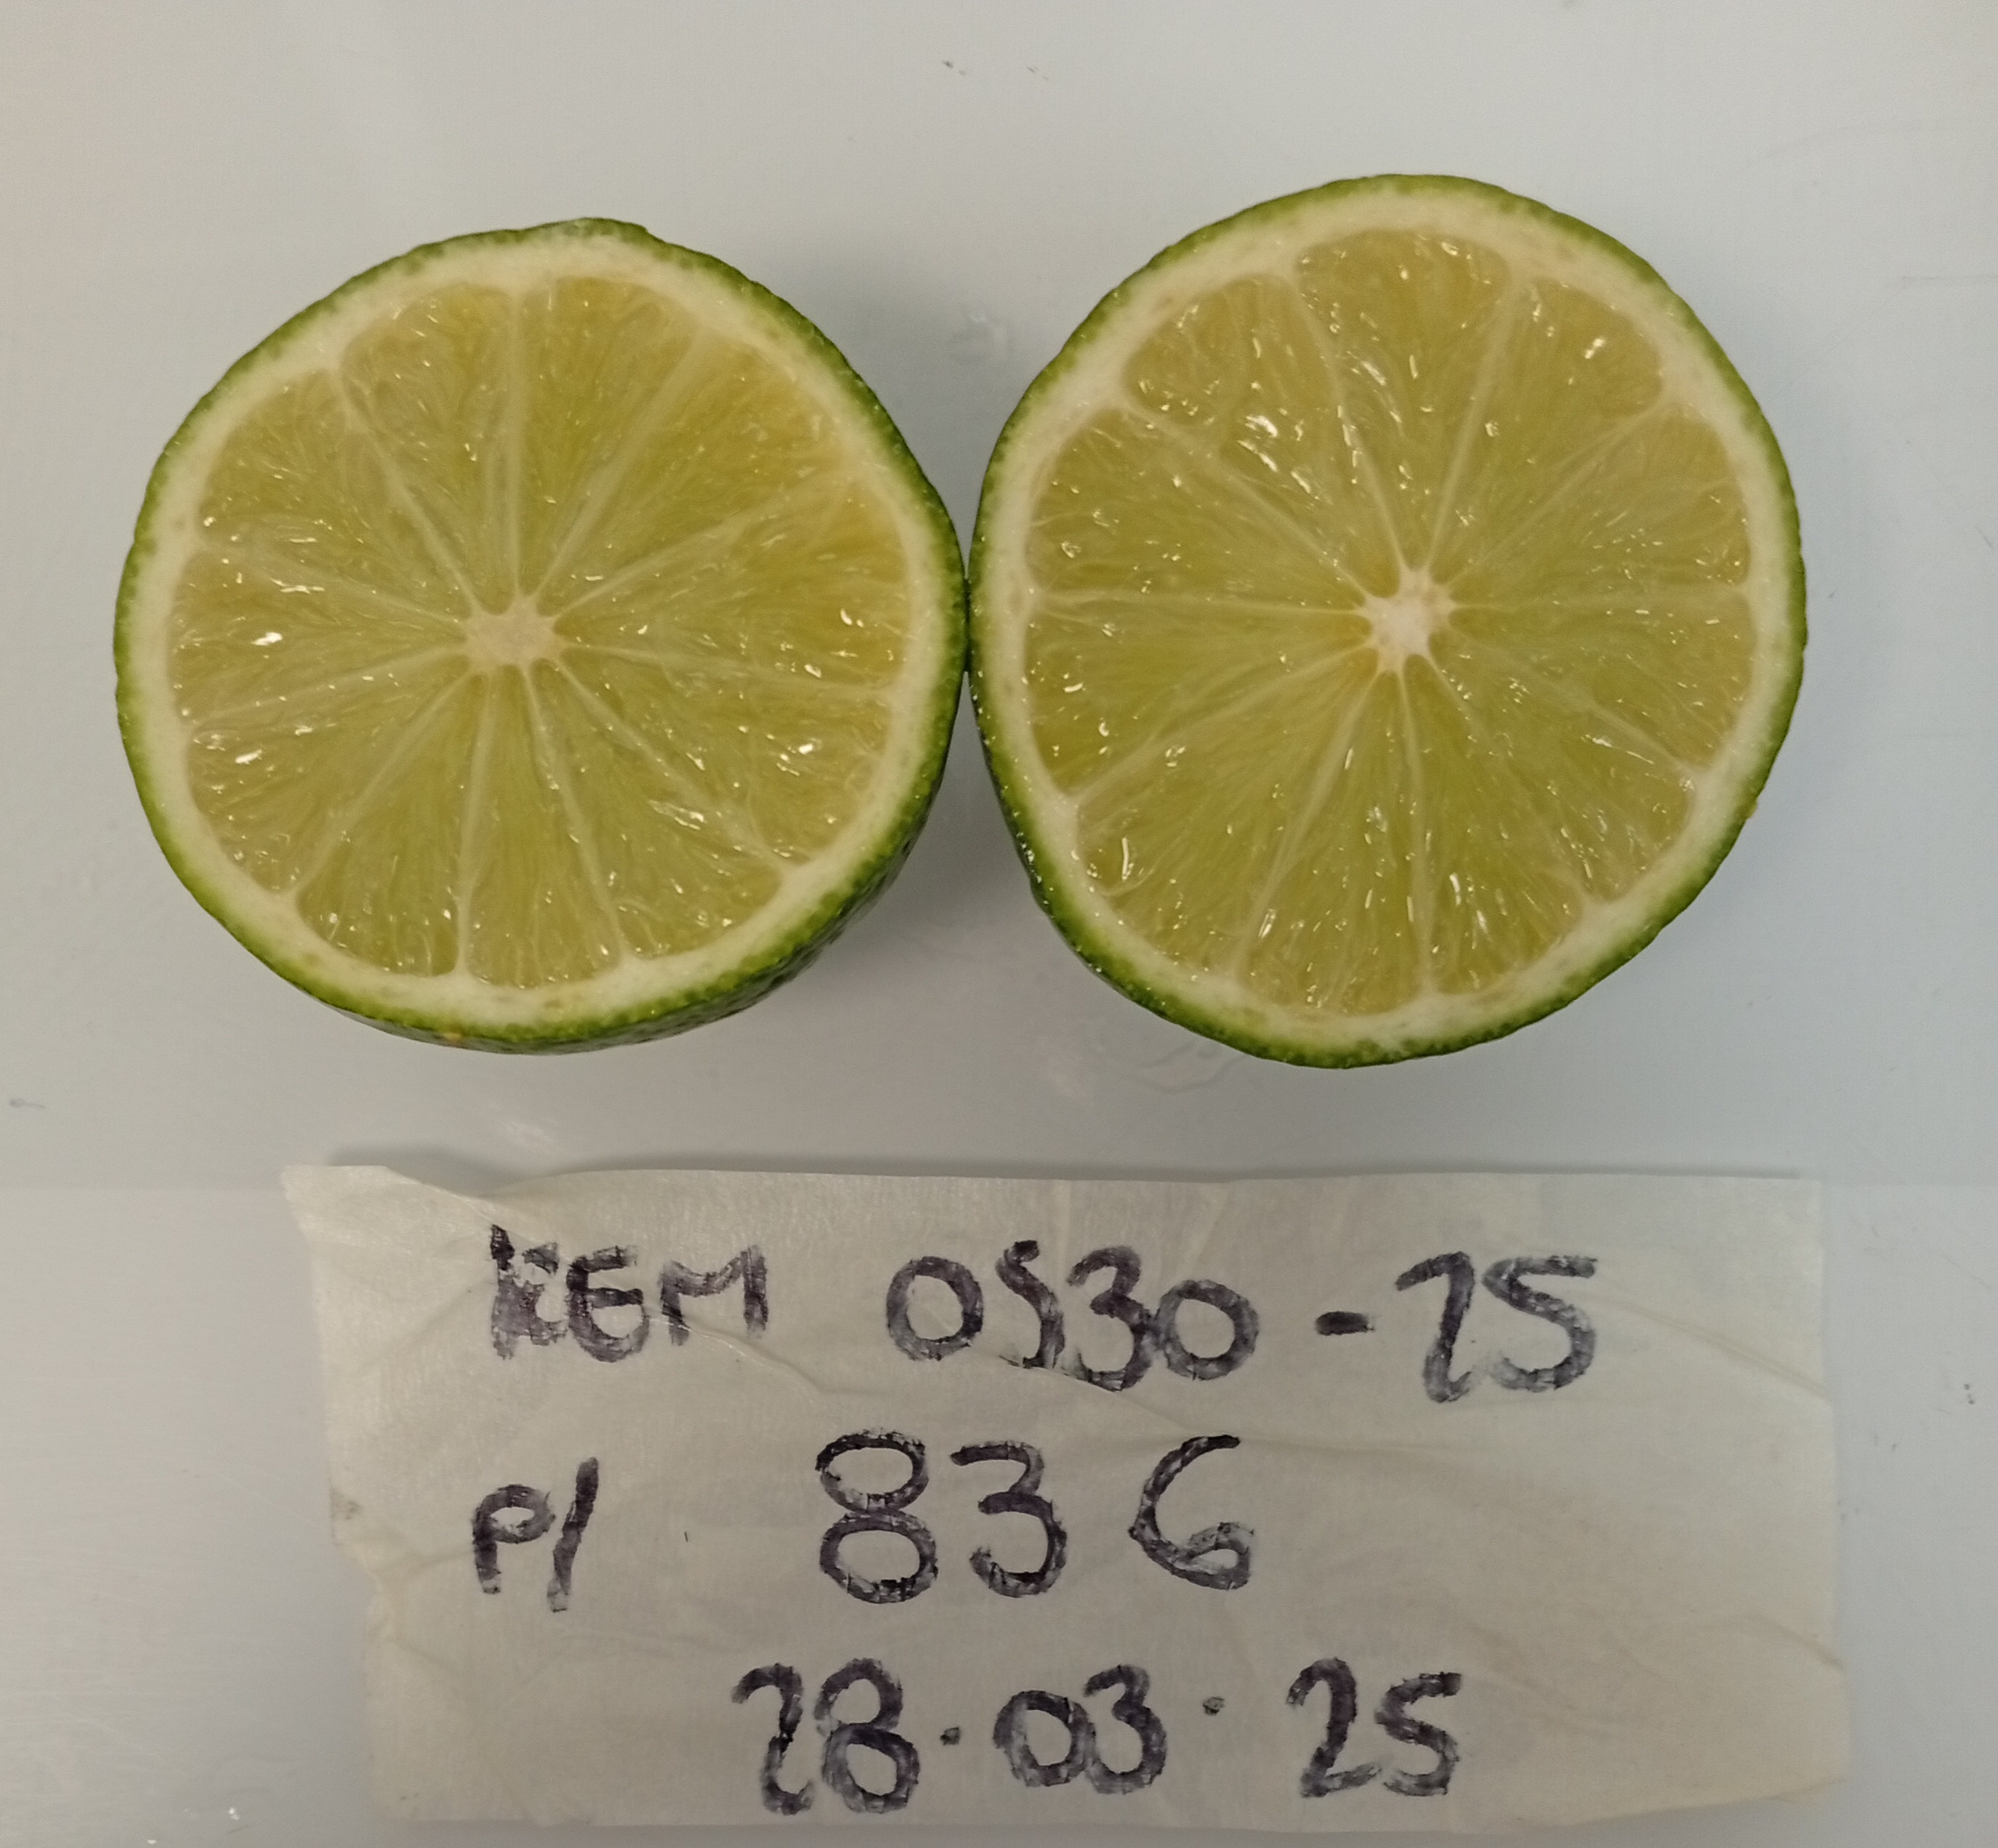 KEM 0530-25
P/ 836
28.03.25